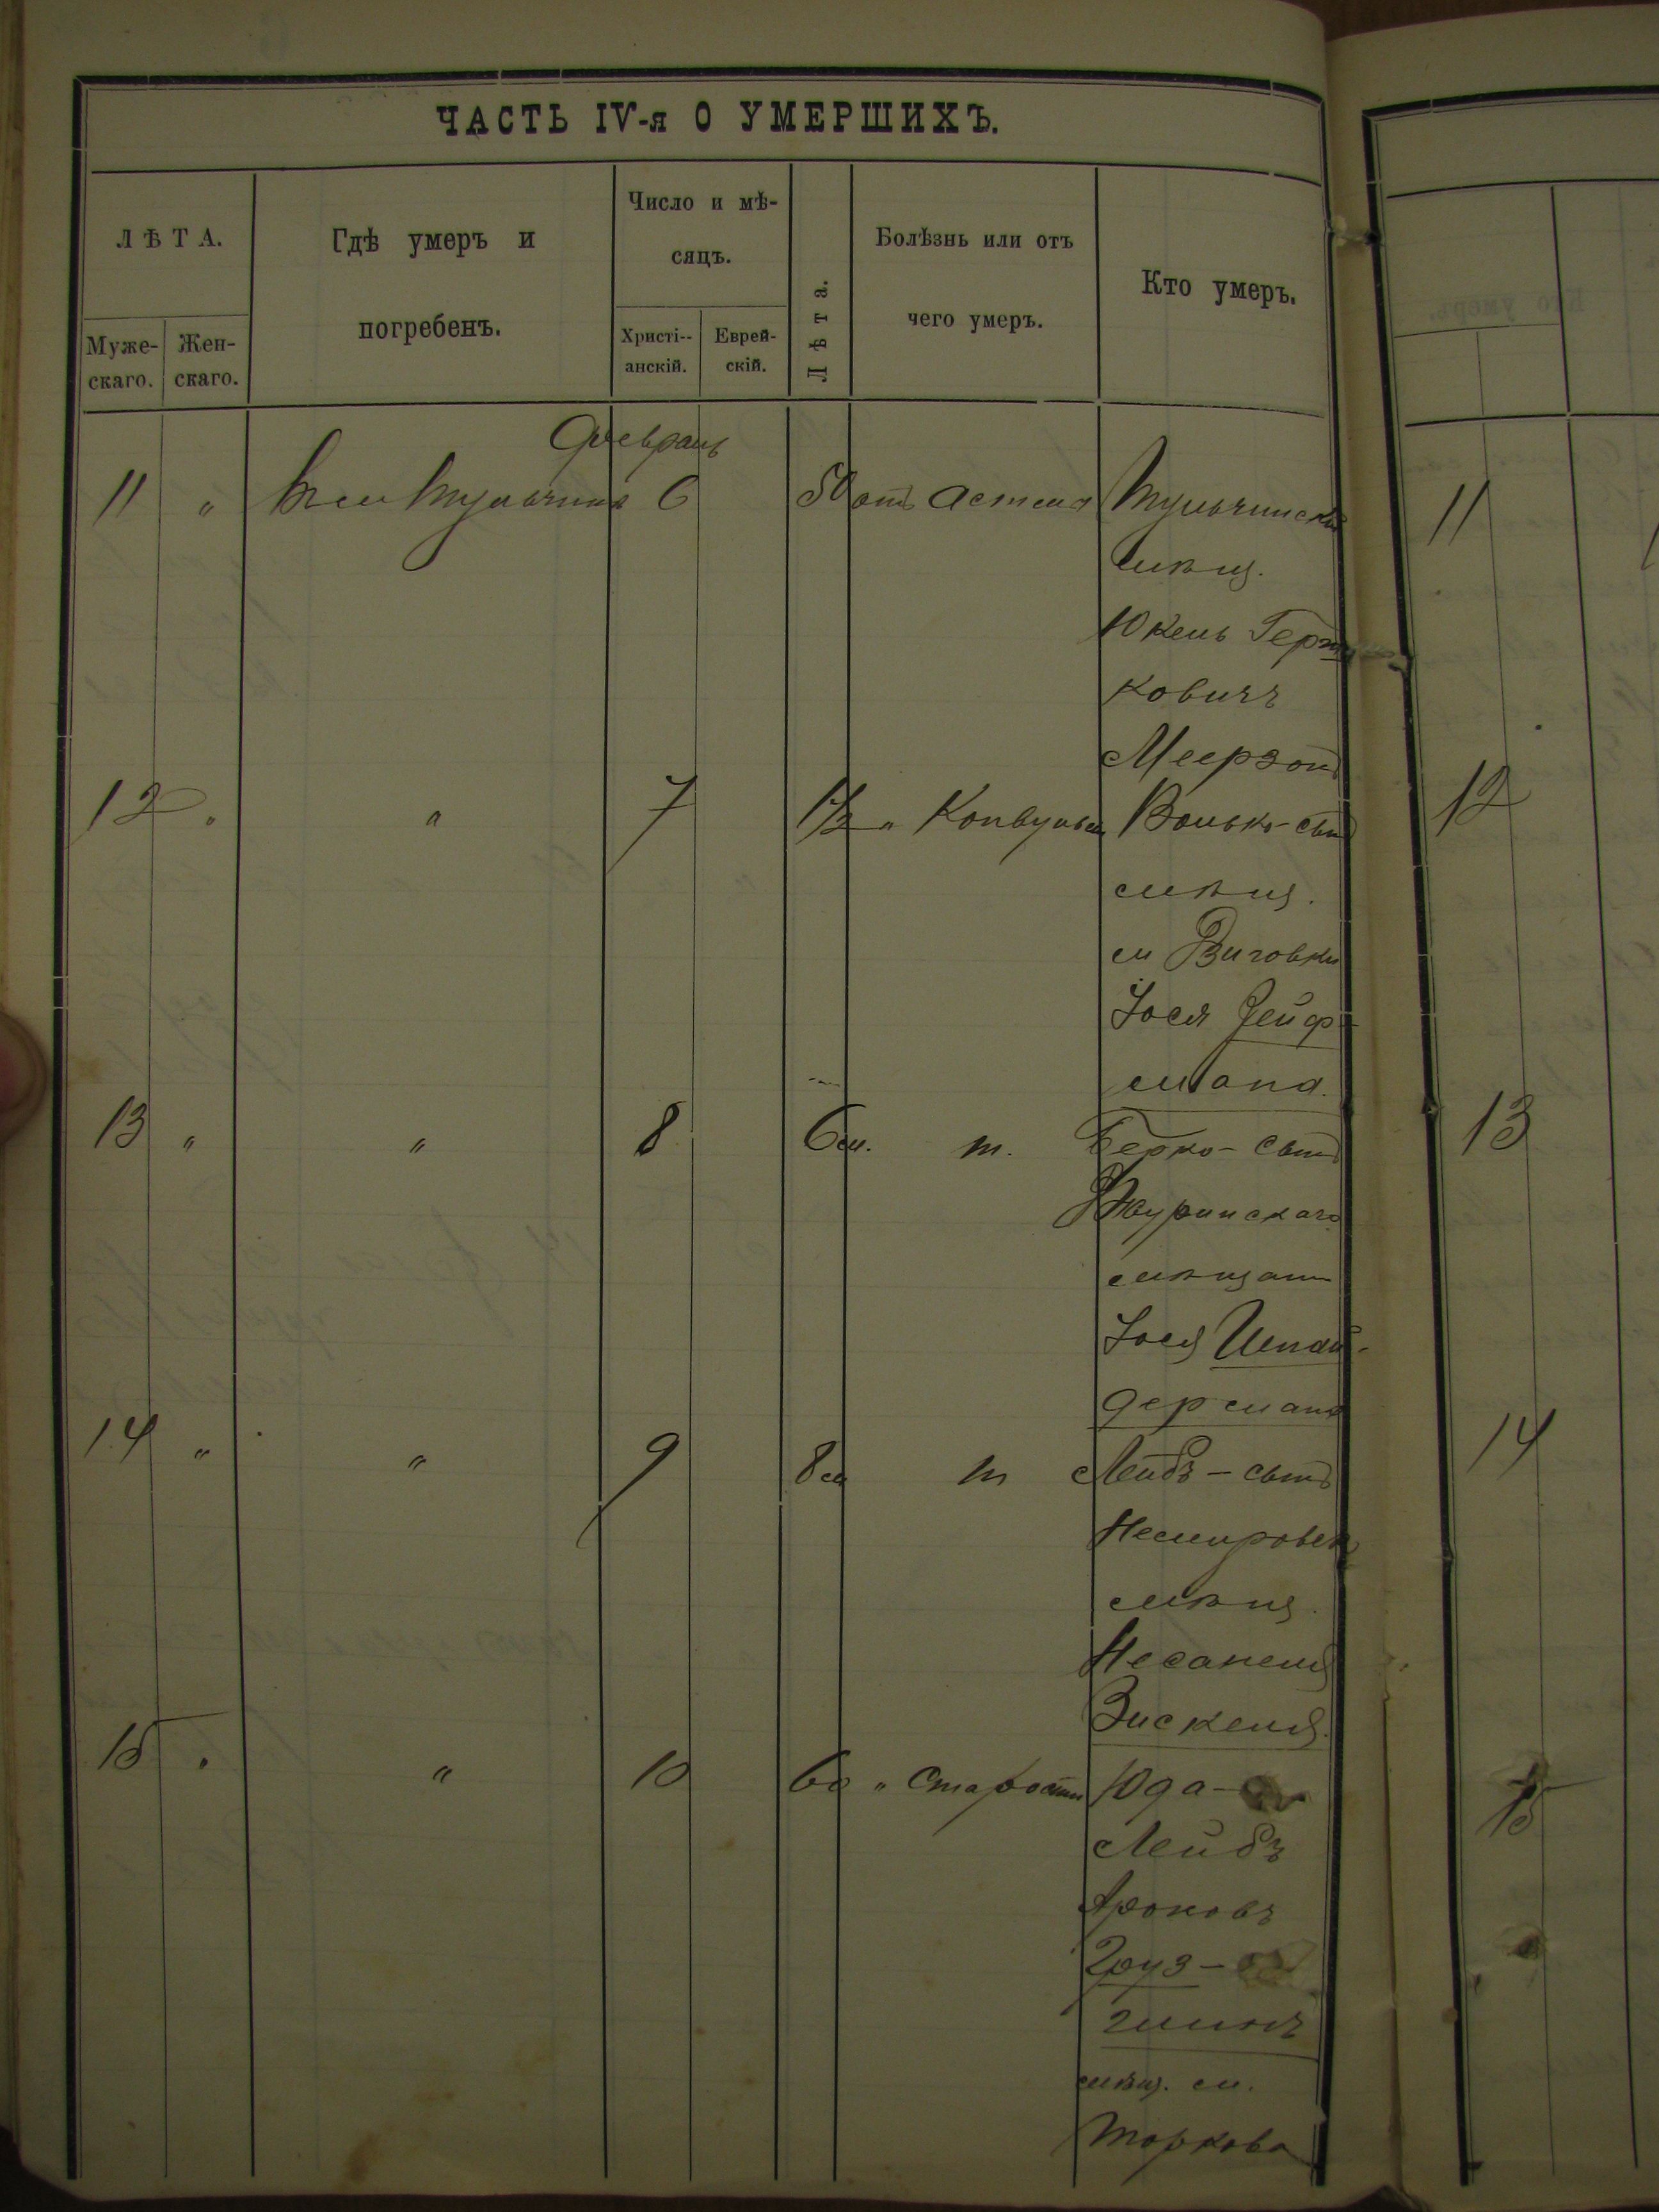 ЧАСТЬ IV-я О УМЕРШИХЪ.
ЛѢТА.
Муже-
скаго.
Жен-
скаго.
Гдѣ умеръ и
погребенъ.
Число и мѣ-
сяцъ.
Христі--
анскій.
Еврей-
скій.
Лѣта.
Болѣзнь или отъ
чего умеръ.
Кто умеръ.
Февраль
11 " Въ м Тульчинѣ 6 50 отъ астма Тульчинскій
мѣщ.
Юкель Герш
ковичъ
Меерзонъ
12 " " 7 1½ " Конвульсіи Волько-сынъ
мѣщ.
м
Іося Зейф-
мана.
13 " " 8 6 м. т. Берко-сынъ
Джуринскаго
мѣщан
Іося Шнай-
дермана
14 " " 9 8 м т Лейбъ-сынъ
Немировск
мѣщ.
15 " " 10 60 " Старости Юда-
Лейбъ
Ароновъ
Груз-
мѣщ. м.
Торкова
11
12
13
14
15